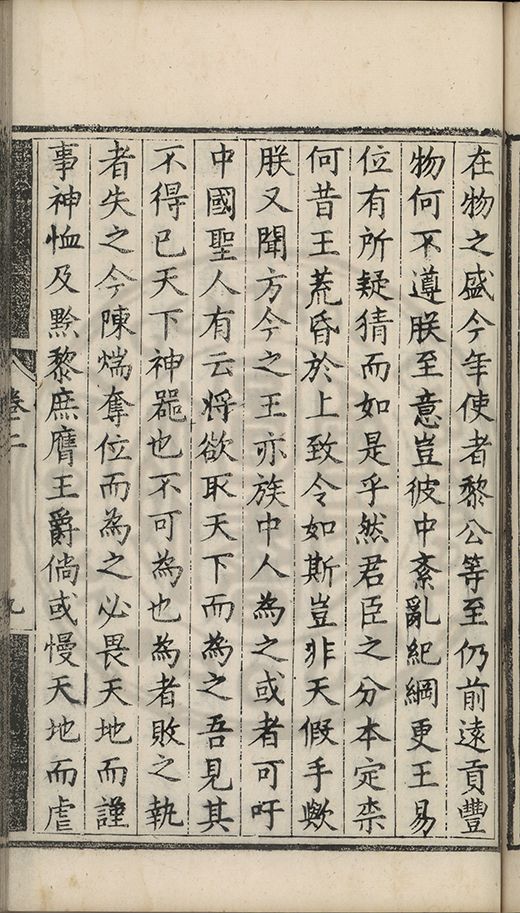 在物之盛今年使者黎公等至仍前遠貢豐
物何不遵朕至意豈彼中紊亂紀綱更王易
位有所疑猜而如是乎然君臣之分本定柰
何昔王荒昏於上致令如斯豈非天假手歟
朕又聞方今之王亦族中人為之或者可吁
中國聖人有云將欲取天下而為之吾見其
不得已天下神噐也不可為也為者敗之執
者失之今陳煓奪位而為之必畏天地而謹
事神恤及黔黎庶膺王爵倘或慢天地而虐
卷二
九